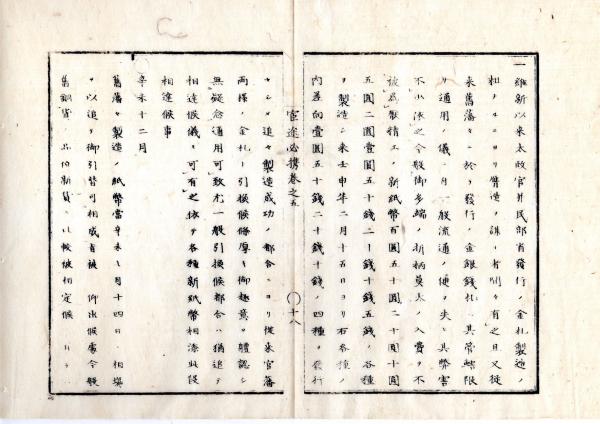 一 維新以来太政官并民部省發行ノ金札製造ノ
粗ナルニヨリ贋造ノ誅ニ者間々有之且又従
来舊藩々ニ於テ發行ノ金銀錢札ハ其管轄限
リ通用ノ儀ニ付一般流通ノ便ヲ失ヒ其弊害
不小依之今般御多端ノ折柄莫大ノ入費ヲ不
被為厭精工ノ新紙幣百圓五十圓二十圓十圓
五圓二圓壹圓五十錢二十錢十錢五錢ノ各種
ヲ製造シ来壬申年二月十五日ヨリ右各種ノ
内差向壹圓五十錢二十錢十錢ノ四種ヲ發行
官途必携巻之五
〇十八
セシメ追々製造成功ノ都合ニヨリ従来官藩
両様ノ金札ト引換候條厚ク御趣意ヲ體認シ
無疑念通用可致尤一般引換候都合ハ猶追テ
相達候儀モ可有之依テ各種新紙幣相添此段
相達候事
辛未十二月
舊藩々製造ノ紙幣當辛未七月十四日ノ相場
ヲ以追テ御引替可相成旨被 仰出候處今般
舊銅貨ノ品位新貨ニ比較被相定候ニ